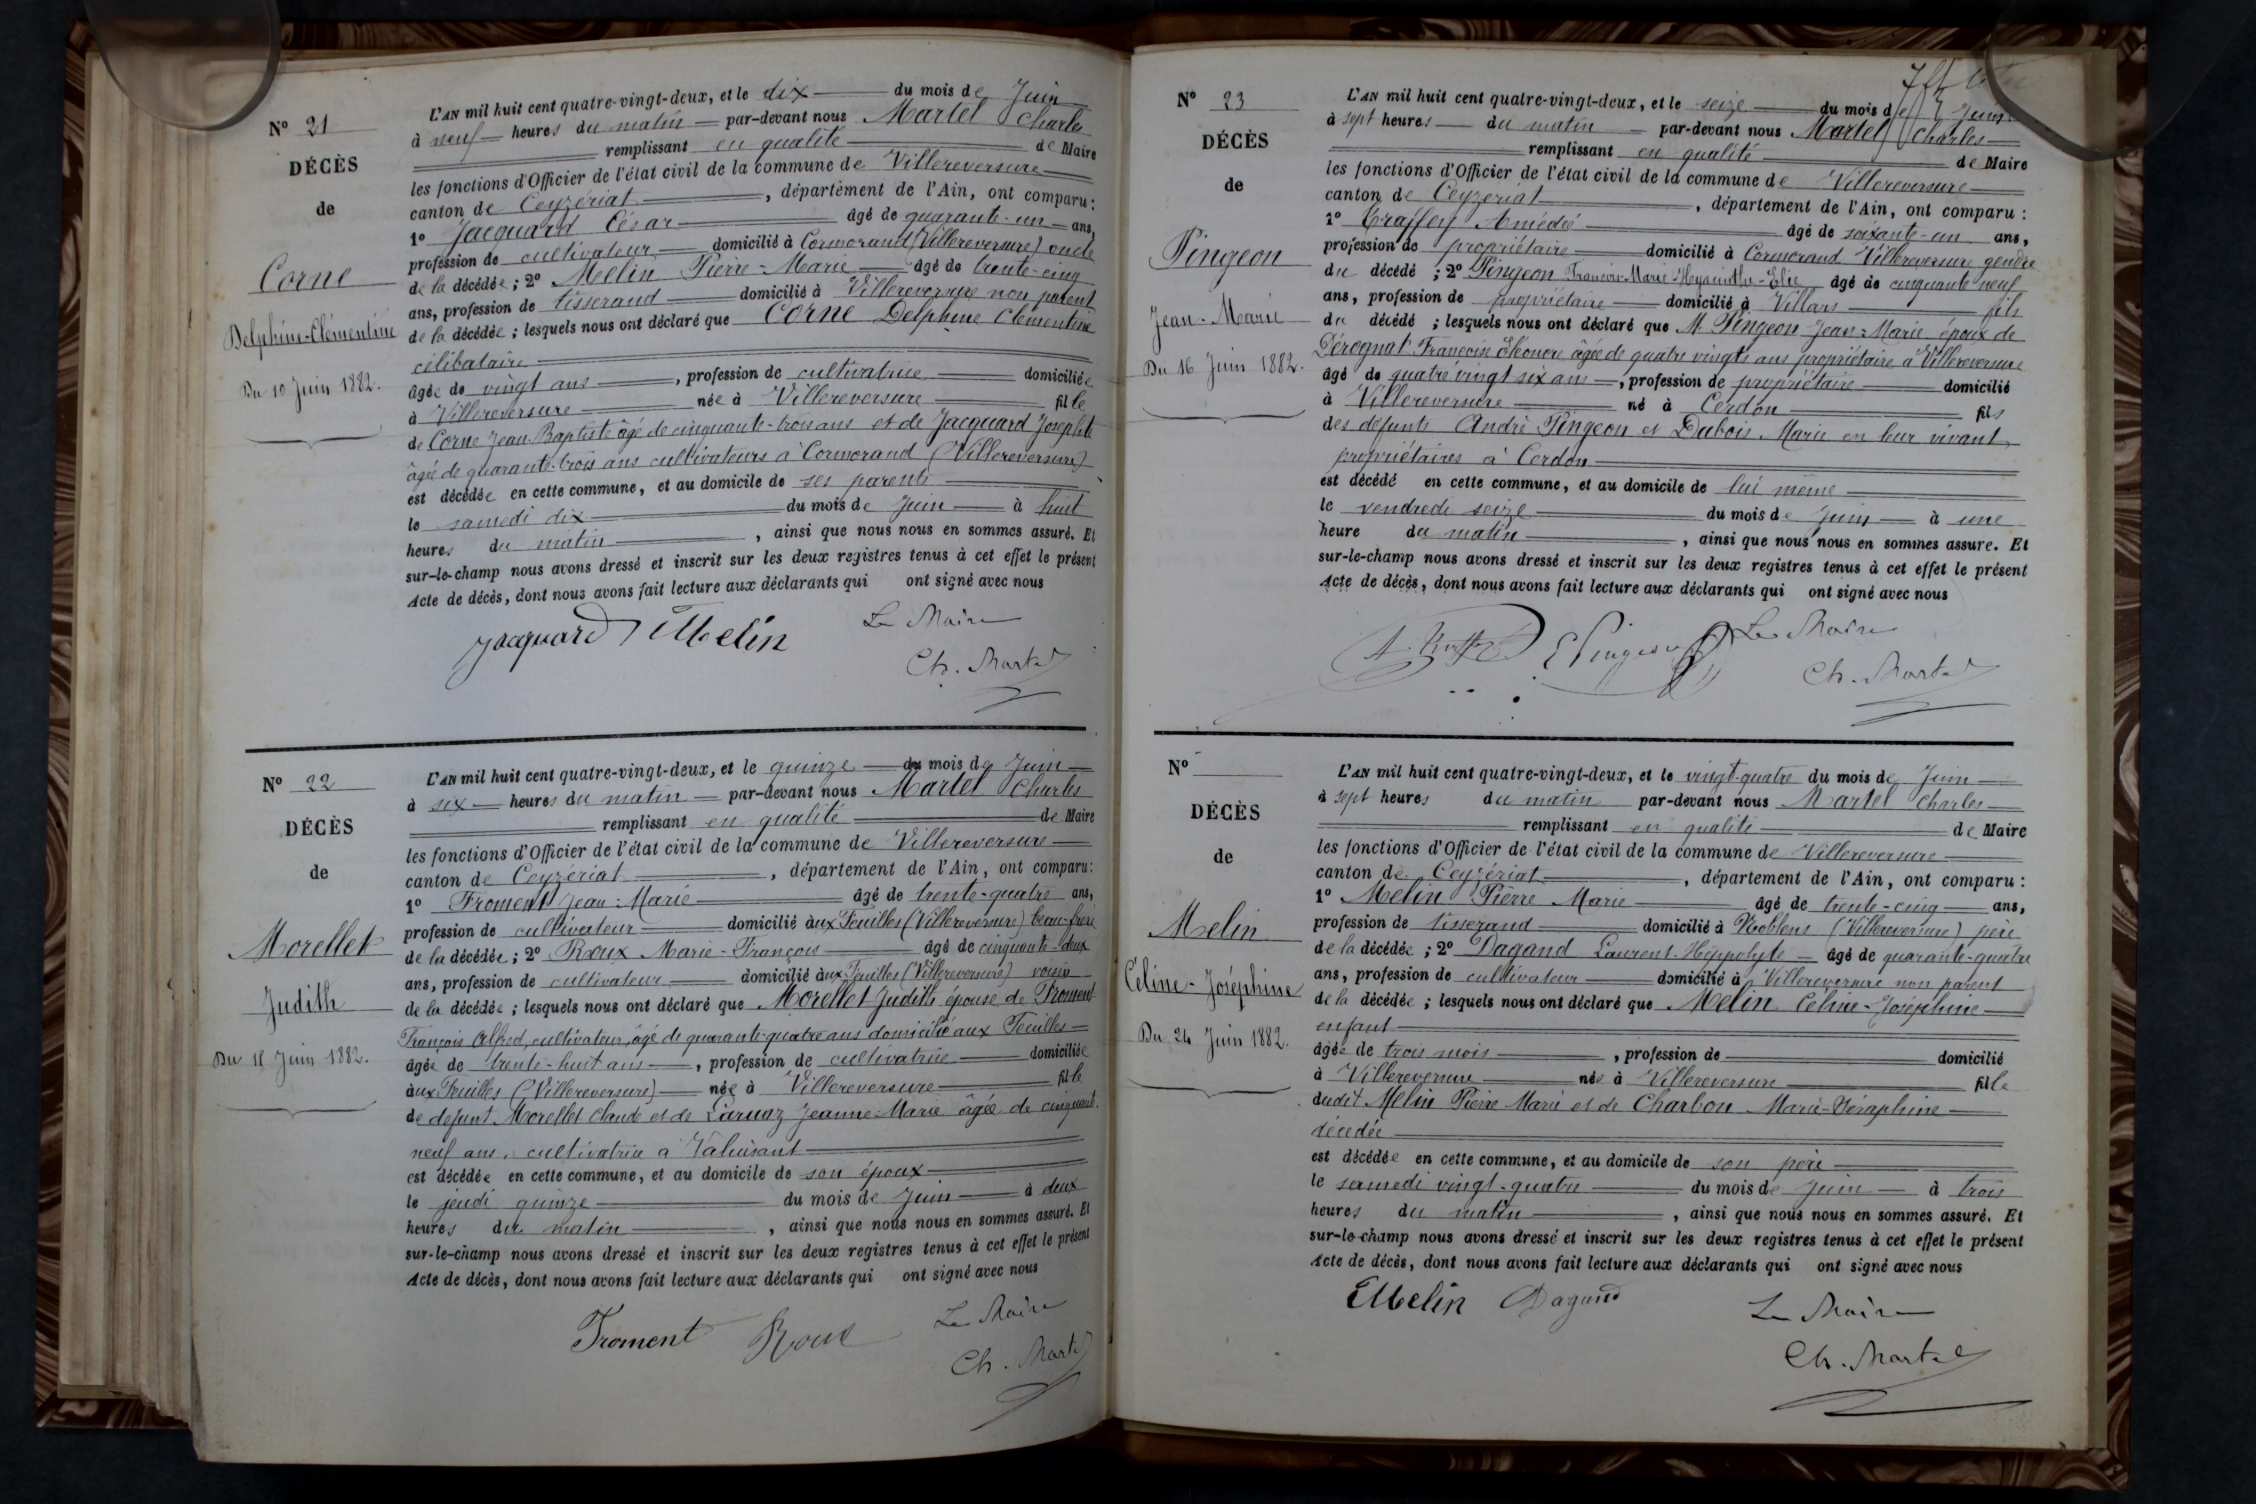 N° 21
DÉCÈS
de
Corne
Delphine-Clémentine
Du 10 Juin 1882.
L'AN mil huit cent quatre-vingt-deux, et le dix du mois de Juin
à neuf heures du matin par-devant nous Martel Charles
remplissant en qualité de Maire
les fonctions d'Officier de l'état civil de la commune de Villereversure
canton de Ceyzériat, département de l'Ain, ont comparu :
1° Jacquard César âgé de quarante-un ans,
profession de cultivateur domicilié à Cormorand (Villereversure) oncle
de la décédée ; 2° Melin Pierre-Marie âgé de trente-cinq
ans, profession de tisserand domicilié à Villereversure non parent
de la décédée ; lesquels nous ont déclaré que Corne Delphine Clémentine
célibataire
âgée de vingt ans, profession de cultivatrice domiciliée
à Villereversure née à Villereversure fille
de Corne Jean-Baptiste âgé de cinquante-trois ans et de Jacquard Josephte
âgée de quarante-trois ans cultivateurs à Cormorand (Villereversure)
est décédée en cette commune, et au domicile de ses parents
le samedi dix du mois de Juin à huit
heures du matin, ainsi que nous nous en sommes assuré. Et
sur-le-champ nous avons dressé et inscrit sur les deux registres tenus à cet effet le présent
Acte de décès, dont nous avons fait lecture aux déclarants qui ont signé avec nous
Jacquard Melin Le Maire
Ch. Martel
N° 22
DÉCÈS
de
Morellet
Judith
Du 15 Juin 1882.
L'AN mil huit cent quatre-vingt-deux, et le quinze du mois de Juin
à six heures du matin par-devant nous Martel Charles
remplissant en qualité de Maire
les fonctions d'Officier de l'état civil de la commune de Villereversure
canton de Ceyzériat, département de l'Ain, ont comparu :
1° Froment Jean-Marie âgé de trente-quatre ans,
profession de cultivateur domicilié aux Feuilles (Villereversure) beau-frère
de la décédée ; 2° Roux Marie-François âgé de cinquante-deux
ans, profession de cultivateur domicilié aux Feuilles (Villereversure) voisin
de la décédée ; lesquels nous ont déclaré que Morellet Judith épouse de Froment
François Alfred, cultivateur, âgé de quarante-quatre ans domicilié aux Feuilles
âgée de trente-huit ans, profession de cultivatrice domiciliée
aux Feuilles (Villereversure) née à Villereversure fille
de défunt Morellet Claude et de Jeanne-Marie âgée de cinquante
neuf ans, cultivatrice à
est décédée en cette commune, et au domicile de son époux
le jeudi quinze du mois de Juin à deux
heures du matin, ainsi que nous nous en sommes assuré. Et
sur-le-champ nous avons dressé et inscrit sur les deux registres tenus à cet effet le présent
Acte de décès, dont nous avons fait lecture aux déclarants qui ont signé avec nous
Froment Roux Le Maire
Ch. Martel
N° 23
DÉCÈS
de
Pingeon
Jean-Marie
Du 16 Juin 1882.
L'AN mil huit cent quatre-vingt-deux, et le seize du mois de Juin
à sept heures du matin par-devant nous Martel Charles
remplissant en qualité de Maire
les fonctions d'Officier de l'état civil de la commune de Villereversure
canton de Ceyzériat, département de l'Ain, ont comparu :
1° Amédée âgé de soixante-un ans,
profession de propriétaire domicilié à Cormorand Villereversure gendre
du décédé ; 2° Pingeon François-Marie-Hyacinthe-Elie âgé de cinquante neuf
ans, profession de propriétaire domicilié à Villars fils
du décédé ; lesquels nous ont déclaré que M. Pingeon Jean-Marie époux de
Françoise Eléonore âgée de quatre vingts ans propriétaire à Villereversure
âgé de quatre vingt six ans, profession de propriétaire domicilié
à Villereversure né à Cerdon fils
des défunts André Pingeon et Dubois Marie en leur vivant
propriétaires à Cerdon
est décédé en cette commune, et au domicile de lui même
le vendredi seize du mois de Juin à une
heure du matin, ainsi que nous nous en sommes assuré. Et
sur-le-champ nous avons dressé et inscrit sur les deux registres tenus à cet effet le présent
Acte de décès, dont nous avons fait lecture aux déclarants qui ont signé avec nous
E Pingeon Le Maire
Ch. Martel
N°
DÉCÈS
de
Melin
Céline-Joséphine
Du 24 Juin 1882.
L'AN mil huit cent quatre-vingt-deux, et le vingt-quatre du mois de Juin
à sept heures du matin par-devant nous Martel Charles
remplissant en qualité de Maire
les fonctions d'Officier de l'état civil de la commune de Villereversure
canton de Ceyzériat, département de l'Ain, ont comparu :
1° Melin Pierre Marie âgé de trente-cinq ans,
profession de tisserand domicilié à Noblens (Villereversure) père
de la décédée ; 2° Dagand Laurent-Hyppolyte âgé de quarante-quatre
ans, profession de cultivateur domicilié à Villereversure non parent
de la décédée ; lesquels nous ont déclaré que Melin Céline-Joséphine
enfant
âgée de trois mois, profession de domicilié
à Villereversure née à Villereversure fille
dudit Melin Pierre Marie et de Charbon Marie-Séraphine
décédée
est décédée en cette commune, et au domicile de son père
le samedi vingt-quatre du mois de Juin à trois
heures du matin, ainsi que nous nous en sommes assuré. Et
sur-le-champ nous avons dressé et inscrit sur les deux registres tenus à cet effet le présent
Acte de décès, dont nous avons fait lecture aux déclarants qui ont signé avec nous
Melin Dagand Le Maire
Ch. Martel